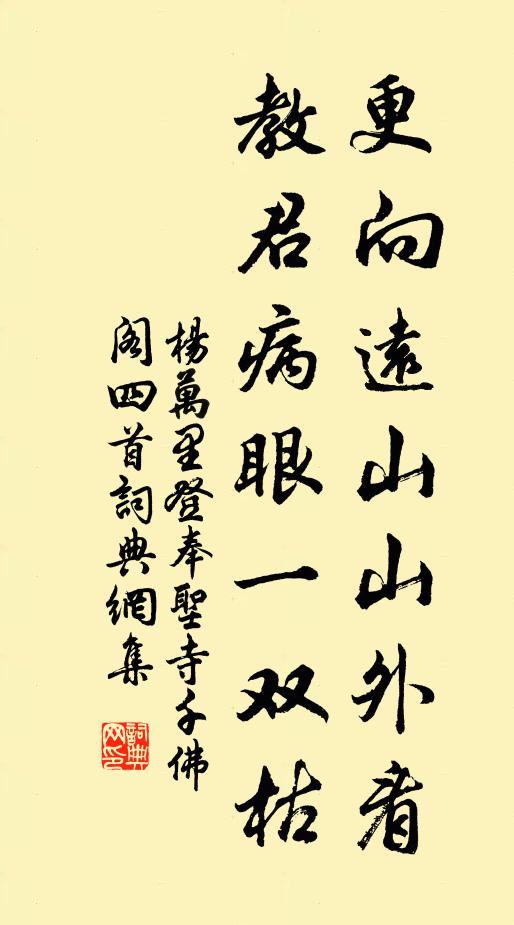 更向遠山山外看
教君病眼一双枯
楊萬里登奉聖寺千佛
阁四首詞典網集
詞典
网印